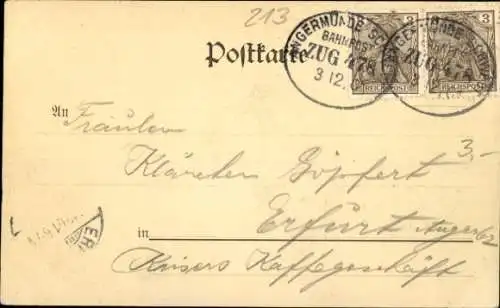 213
ANGERMÜNDE SCHWEDT
BAHNPOST
ZUG 478
3 12.
3
3
REICHSPOST
REICHSPOST
Postkarte
An
Fräulein
Klärchen Göpfert
3,-
in Erfurt Anger 62
Kaisers Kaffegeschäft
ER